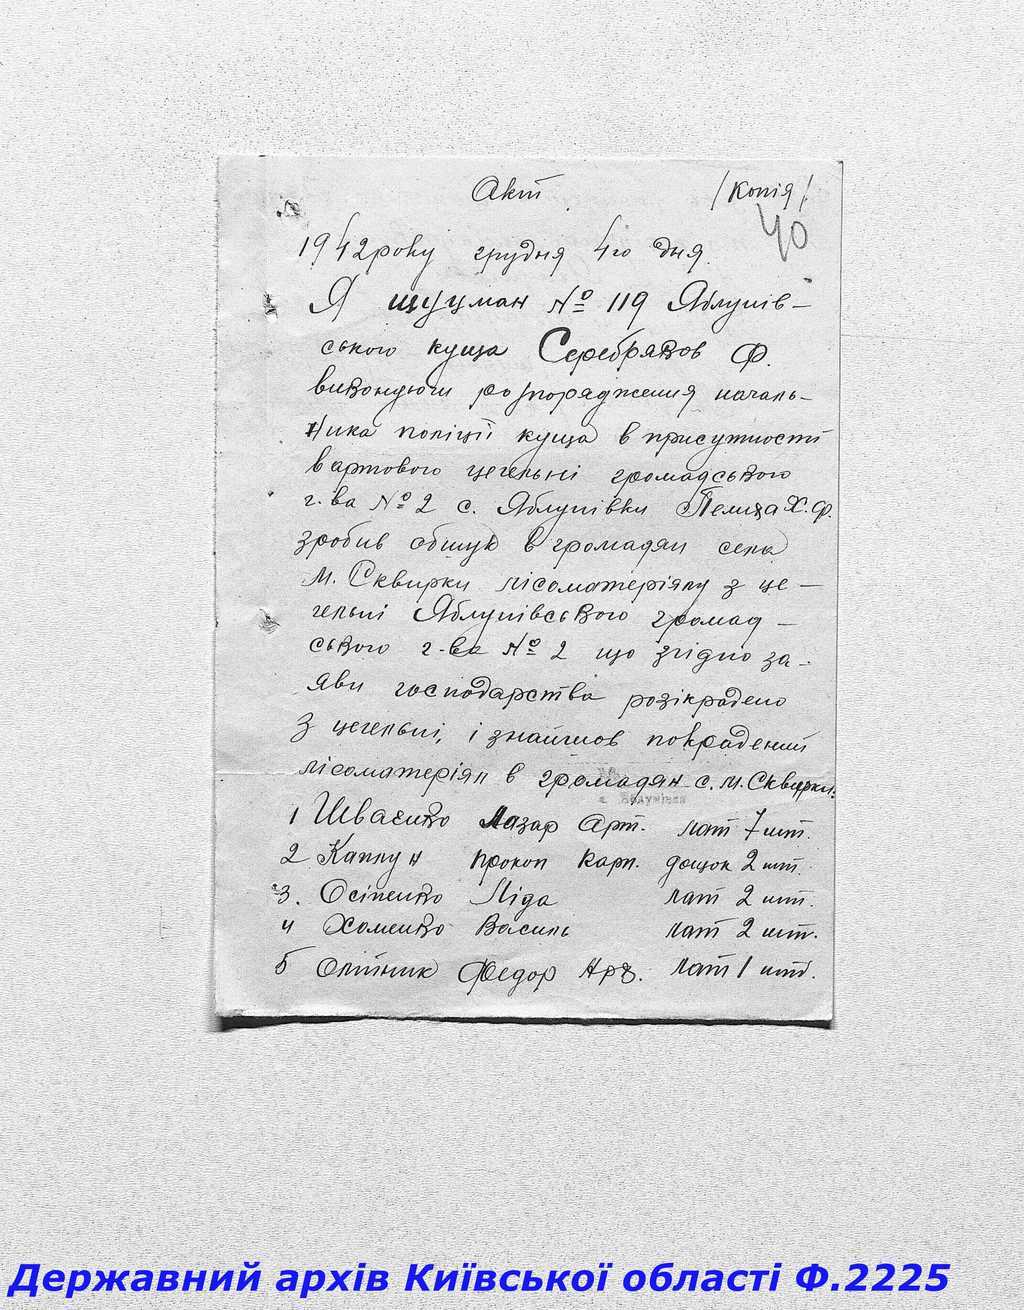 Акт /копія/
40
1942 року грудня 4го дня.
Я шуцман № 119 Яблунів-
ського куща Серебряков Ф.
виконуючи розпорядження началь-
ника поліції куща в присутності
вартового цегельні громадського
г-ва № 2 с. Яблунівки Х. Ф.
зробив обшук в громадян села
М. Сквирки лісоматеріялу з це-
гельні Яблунівського громад-
ського г-ва № 2 що згідно за-
яви господарства розікрадено
з цегельні, і знайшов покрадений
лісоматеріял в громадян с. М. Сквирки:
1 Шваєнко Лазар Арт. лат 7 шт.
2 Каплун Прокоп Карп. дощок 2 шт.
3. Осіпенко Ліда лат 2 шт.
4 Хоменко Василь лат 2 шт.
5 Олійник Федор лат 1 шт.
Державний архів Київської області Ф.2225